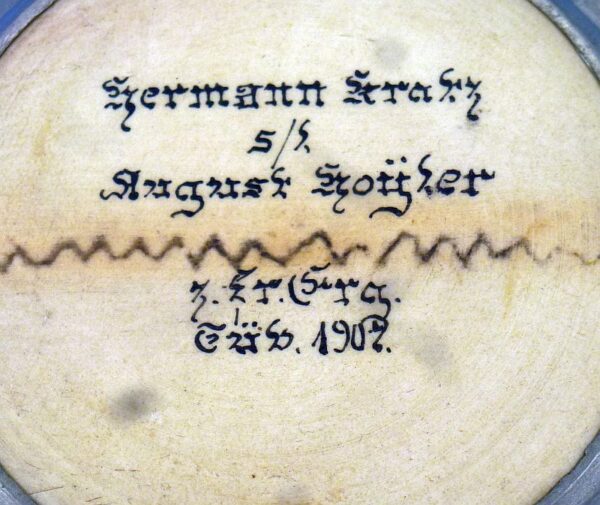 Hermann Kratz
s/l.
August Hoÿler
z. fr. Erg.
Tüb. 1907.